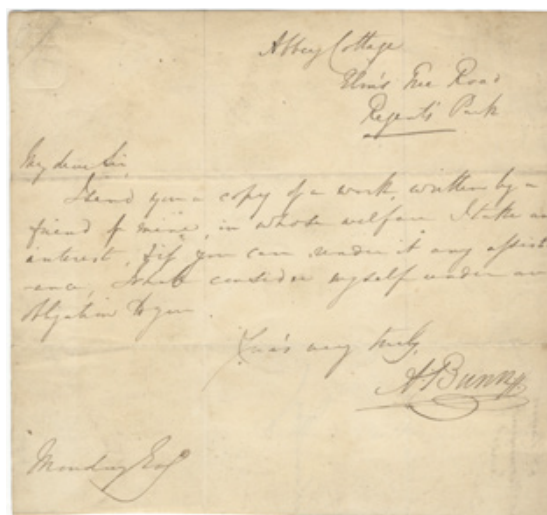 Abbey Cottage
Elm's Tree Road
Regent's Park
My dear Sir,
I send you a copy of a work written by a
friend of mine, in whose welfare I take an
interest, & if you can render it any assist
ance, I shall consider myself under an
obligation to you.
Your's very truly,
A Bunn
Esq